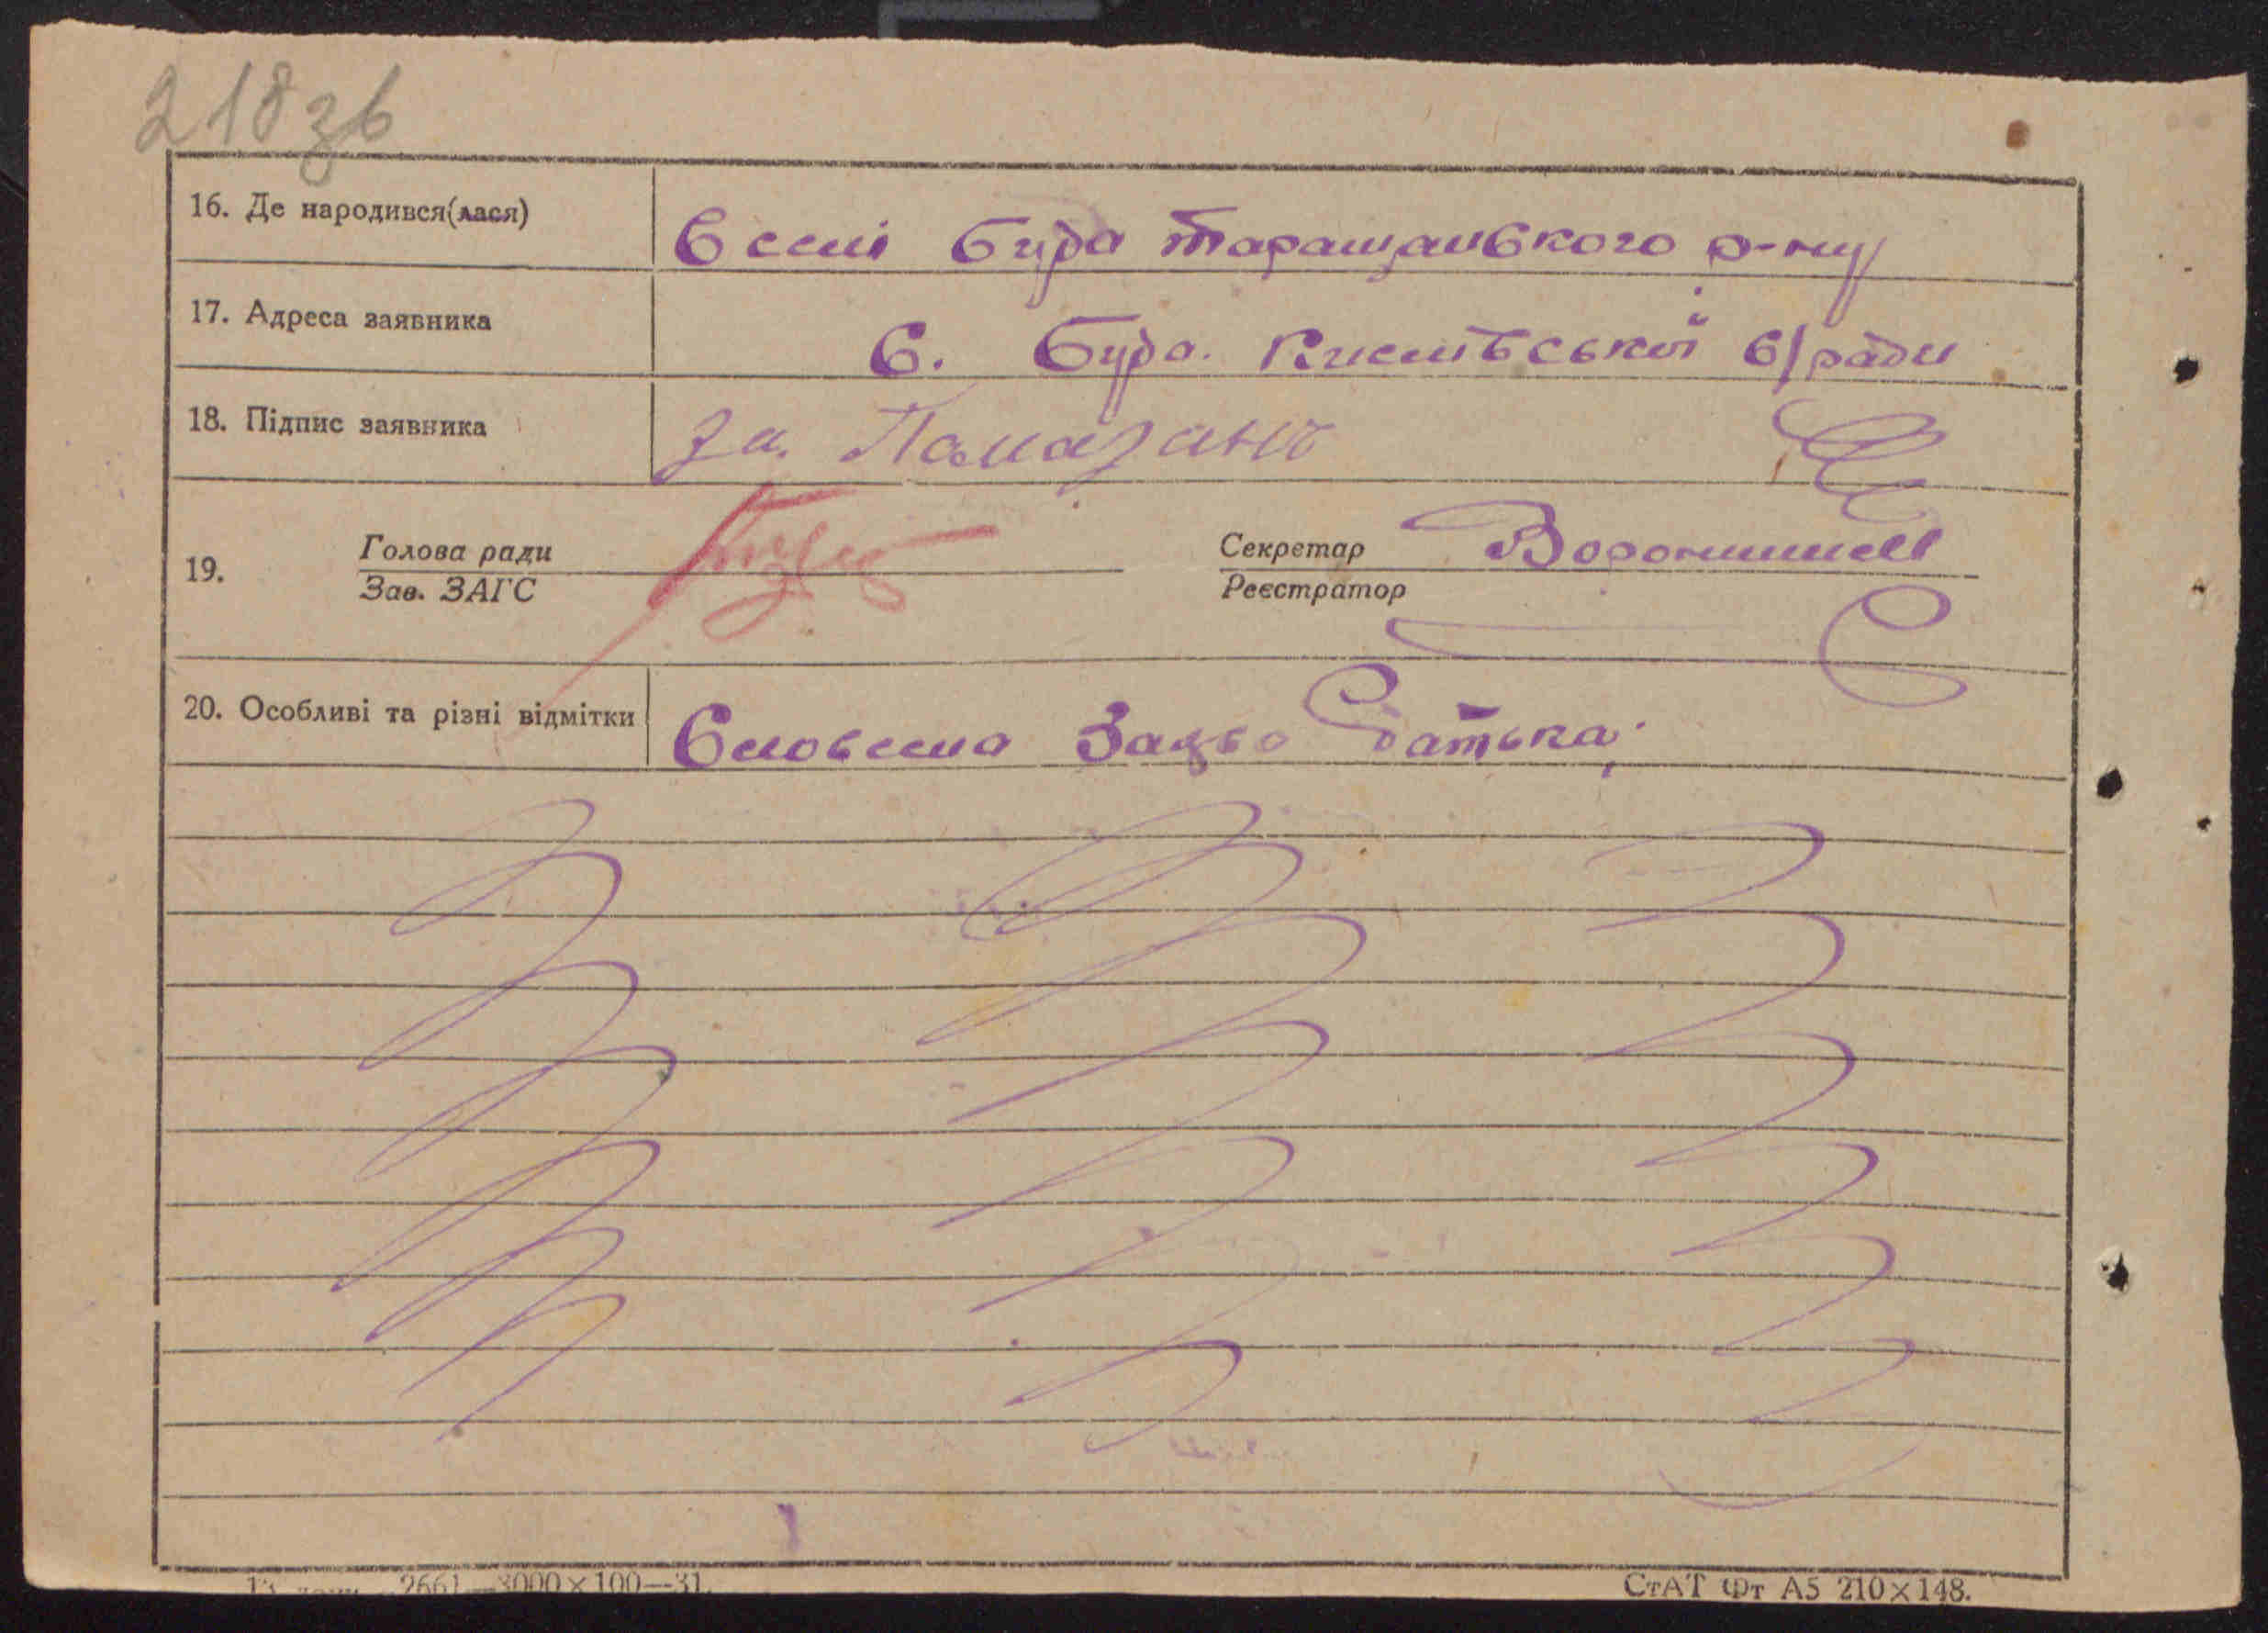 218 зв
16. Де народився(лася) В селі Буда Таращанського р-ну
17. Адреса заявника С. Буда. Кислівської с/ради
18. Підпис заявника за.
Голова ради Секретар
19.
Зав. ЗАГС Реєстратор
20. Особливі та різні відмітки Зі слов батька
2661—3000×100—31.
СтАТ Фт А5 210×148.